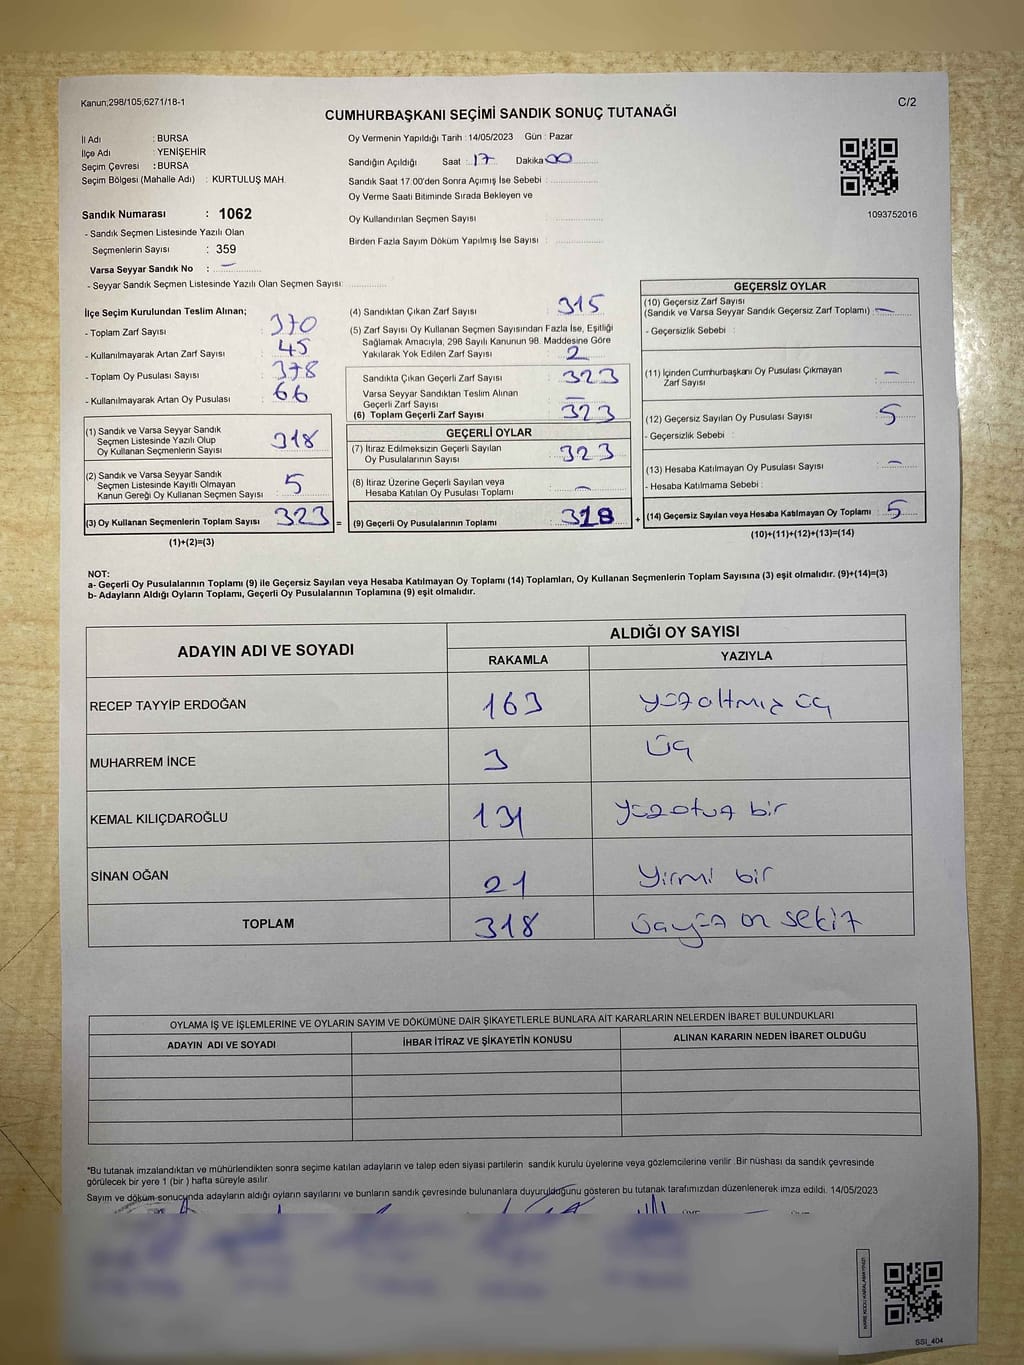 Kanun;298/105;6271/18-1
C/2
CUMHURBAŞKANI SEÇİMİ SANDIK SONUÇ TUTANAĞI
İl Adı : BURSA
İlçe Adı : YENİŞEHİR
Seçim Çevresi : BURSA
Seçim Bölgesi (Mahalle Adı) : KURTULUŞ MAH.
Sandık Numarası : 1062
- Sandık Seçmen Listesinde Yazılı Olan
Seçmenlerin Sayısı : 359
Varsa Seyyar Sandık No : –
- Seyyar Sandık Seçmen Listesinde Yazılı Olan Seçmen Sayısı:
Oy Vermenin Yapıldığı Tarih : 14/05/2023 Gün : Pazar
Sandığın Açıldığı Saat : 17 Dakika 00
Sandık Saat 17.00'den Sonra Açımış İse Sebebi :
Oy Verme Saati Bitiminde Sırada Bekleyen ve
Oy Kullandırılan Seçmen Sayısı :
Birden Fazla Sayım Döküm Yapılmış İse Sayısı :
1093752016
İlçe Seçim Kurulundan Teslim Alınan;
- Toplam Zarf Sayısı : 370
- Kullanılmayarak Artan Zarf Sayısı : 45
- Toplam Oy Pusulası Sayısı : 378
- Kullanılmayarak Artan Oy Pusulası : 66
(1) Sandık ve Varsa Seyyar Sandık
Seçmen Listesinde Yazılı Olup
Oy Kullanan Seçmenlerin Sayısı : 318
(2) Sandık ve Varsa Seyyar Sandık
Seçmen Listesinde Kayıtlı Olmayan
Kanun Gereği Oy Kullanan Seçmen Sayısı : 5
(3) Oy Kullanan Seçmenlerin Toplam Sayısı : 323 =
(1)+(2)=(3)
(4) Sandıktan Çıkan Zarf Sayısı : 315
(5) Zarf Sayısı Oy Kullanan Seçmen Sayısından Fazla İse, Eşitliği
Sağlamak Amacıyla, 298 Sayılı Kanunun 98. Maddesine Göre
Yakılarak Yok Edilen Zarf Sayısı : 2
Sandıkta Çıkan Geçerli Zarf Sayısı : 323
Varsa Seyyar Sandıktan Teslim Alınan
Geçerli Zarf Sayısı : –
(6) Toplam Geçerli Zarf Sayısı : 323
GEÇERLİ OYLAR
(7) İtiraz Edilmeksizin Geçerli Sayılan
Oy Pusulalarının Sayısı : 323
(8) İtiraz Üzerine Geçerli Sayılan veya
Hesaba Katılan Oy Pusulası Toplamı : –
(9) Geçerli Oy Pusulalarının Toplamı : 318 +
GEÇERSİZ OYLAR
(10) Geçersiz Zarf Sayısı
(Sandık ve Varsa Seyyar Sandık Geçersiz Zarf Toplamı) : –
- Geçersizlik Sebebi :
(11) İçinden Cumhurbaşkanı Oy Pusulası Çıkmayan
Zarf Sayısı : –
(12) Geçersiz Sayılan Oy Pusulası Sayısı : 5
- Geçersizlik Sebebi :
(13) Hesaba Katılmayan Oy Pusulası Sayısı : –
- Hesaba Katılmama Sebebi :
(14) Geçersiz Sayılan veya Hesaba Katılmayan Oy Toplamı : 5
(10)+(11)+(12)+(13)=(14)
NOT:
a- Geçerli Oy Pusulalarının Toplamı (9) ile Geçersiz Sayılan veya Hesaba Katılmayan Oy Toplamı (14) Toplamları, Oy Kullanan Seçmenlerin Toplam Sayısına (3) eşit olmalıdır. (9)+(14)=(3)
b- Adayların Aldığı Oyların Toplamı, Geçerli Oy Pusulalarının Toplamına (9) eşit olmalıdır.
ADAYIN ADI VE SOYADI
ALDIĞI OY SAYISI
RAKAMLA YAZIYLA
RECEP TAYYİP ERDOĞAN 163 yüzaltmış üç
MUHARREM İNCE 3 üç
KEMAL KILIÇDAROĞLU 131 yüzotuz bir
SİNAN OĞAN 21 yirmi bir
TOPLAM 318 üçyüz on sekiz
OYLAMA İŞ VE İŞLEMLERİNE VE OYLARIN SAYIM VE DÖKÜMÜNE DAİR ŞİKAYETLERLE BUNLARA AİT KARARLARIN NELERDEN İBARET BULUNDUKLARI
ADAYIN ADI VE SOYADI İHBAR İTİRAZ VE ŞİKAYETİN KONUSU ALINAN KARARIN NEDEN İBARET OLDUĞU
*Bu tutanak imzalandıktan ve mühürlendikten sonra seçime katılan adayların ve talep eden siyasi partilerin sandık kurulu üyelerine veya gözlemcilerine verilir .Bir nüshası da sandık çevresinde
görülecek bir yere 1 (bir ) hafta süreyle asılır.
Sayım ve döküm sonucunda adayların aldığı oyların sayılarını ve bunların sandık çevresinde bulunanlara duyurulduğunu gösteren bu tutanak tarafımızdan düzenlenerek imza edildi. 14/05/2023
KARE KODU KARALAMAYINIZ!
SSI_404